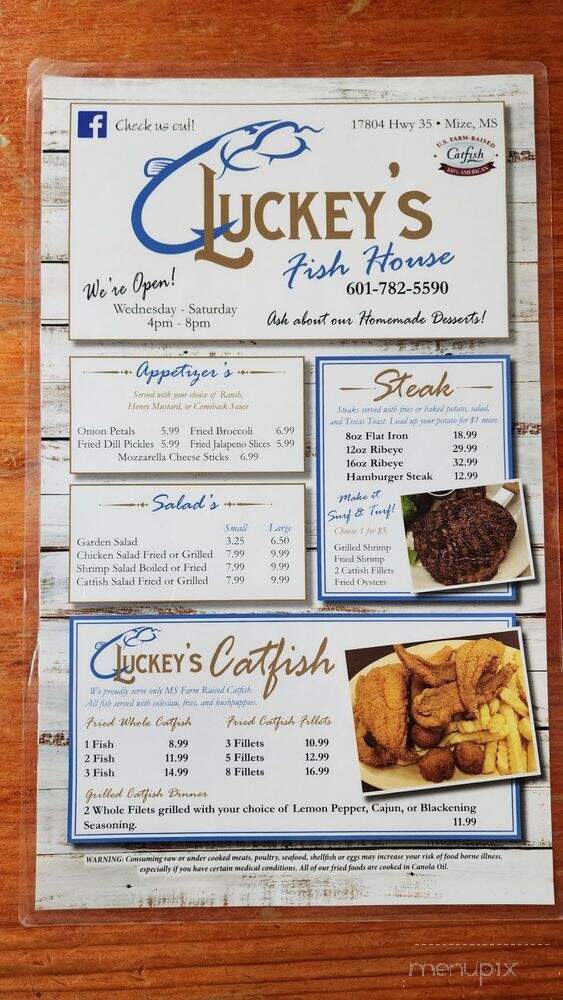 f Check us out!
17804 Hwy 35 • Mize, MS
U.S. FARM-RAISED
Catfish
100% AMERICAN
LUCKEY'S
Fish House
601-782-5590
We're Open!
Wednesday - Saturday
4pm - 8pm
Ask about our Homemade Desserts!
Appetizer's
Served with your choice of Ranch,
Honey Mustard, or Comeback Sauce
Onion Petals 5.99 Fried Broccoli 6.99
Fried Dill Pickles 5.99 Fried Jalapeno Slices 5.99
Mozzarella Cheese Sticks 6.99
Salad's
Small Large
Garden Salad 3.25 6.50
Chicken Salad Fried or Grilled 7.99 9.99
Shrimp Salad Boiled or Fried 7.99 9.99
Catfish Salad Fried or Grilled 7.99 9.99
Steak
Steaks served with fries or baked potato, salad,
and Texas Toast. Load up your potato for $1 more.
8oz Flat Iron 18.99
12oz Ribeye 29.99
16oz Ribeye 32.99
Hamburger Steak 12.99
Make it
Surf & Turf!
Choose 1 for $5.
Grilled Shrimp
Fried Shrimp
2 Catfish Fillets
Fried Oysters
LUCKEY'S Catfish
We proudly serve only MS Farm Raised Catfish.
All fish served with coleslaw, fries, and hushpuppies.
Fried Whole Catfish Fried Catfish Fillets
1 Fish 8.99 3 Fillets 10.99
2 Fish 11.99 5 Fillets 12.99
3 Fish 14.99 8 Fillets 16.99
Grilled Catfish Dinner
2 Whole Filets grilled with your choice of Lemon Pepper, Cajun, or Blackening
Seasoning. 11.99
WARNING: Consuming raw or under cooked meats, poultry, seafood, shellfish or eggs may increase your risk of food borne illness,
especially if you have certain medical conditions. All of our fried foods are cooked in Canola Oil.
menupix